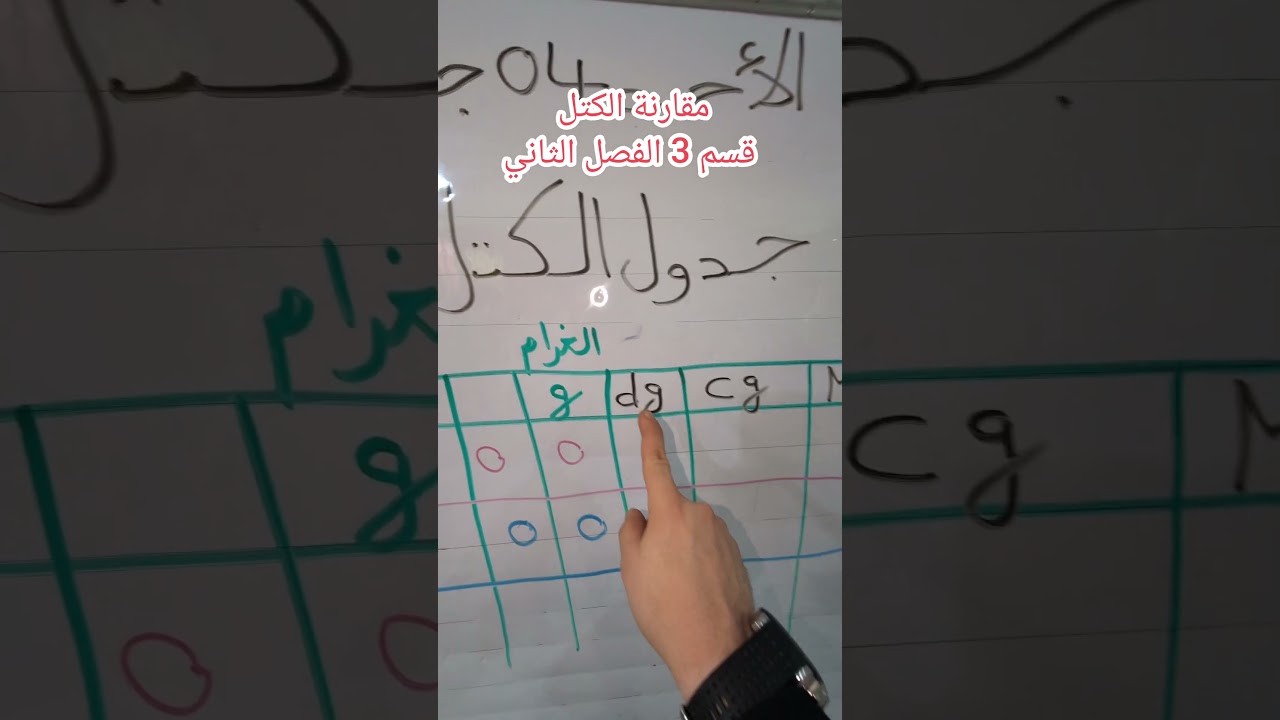 04
مقارنة الكتل
قسم 3 الفصل الثاني
جدول الكتل
الغرام
g dg cg M
0 0
0 0